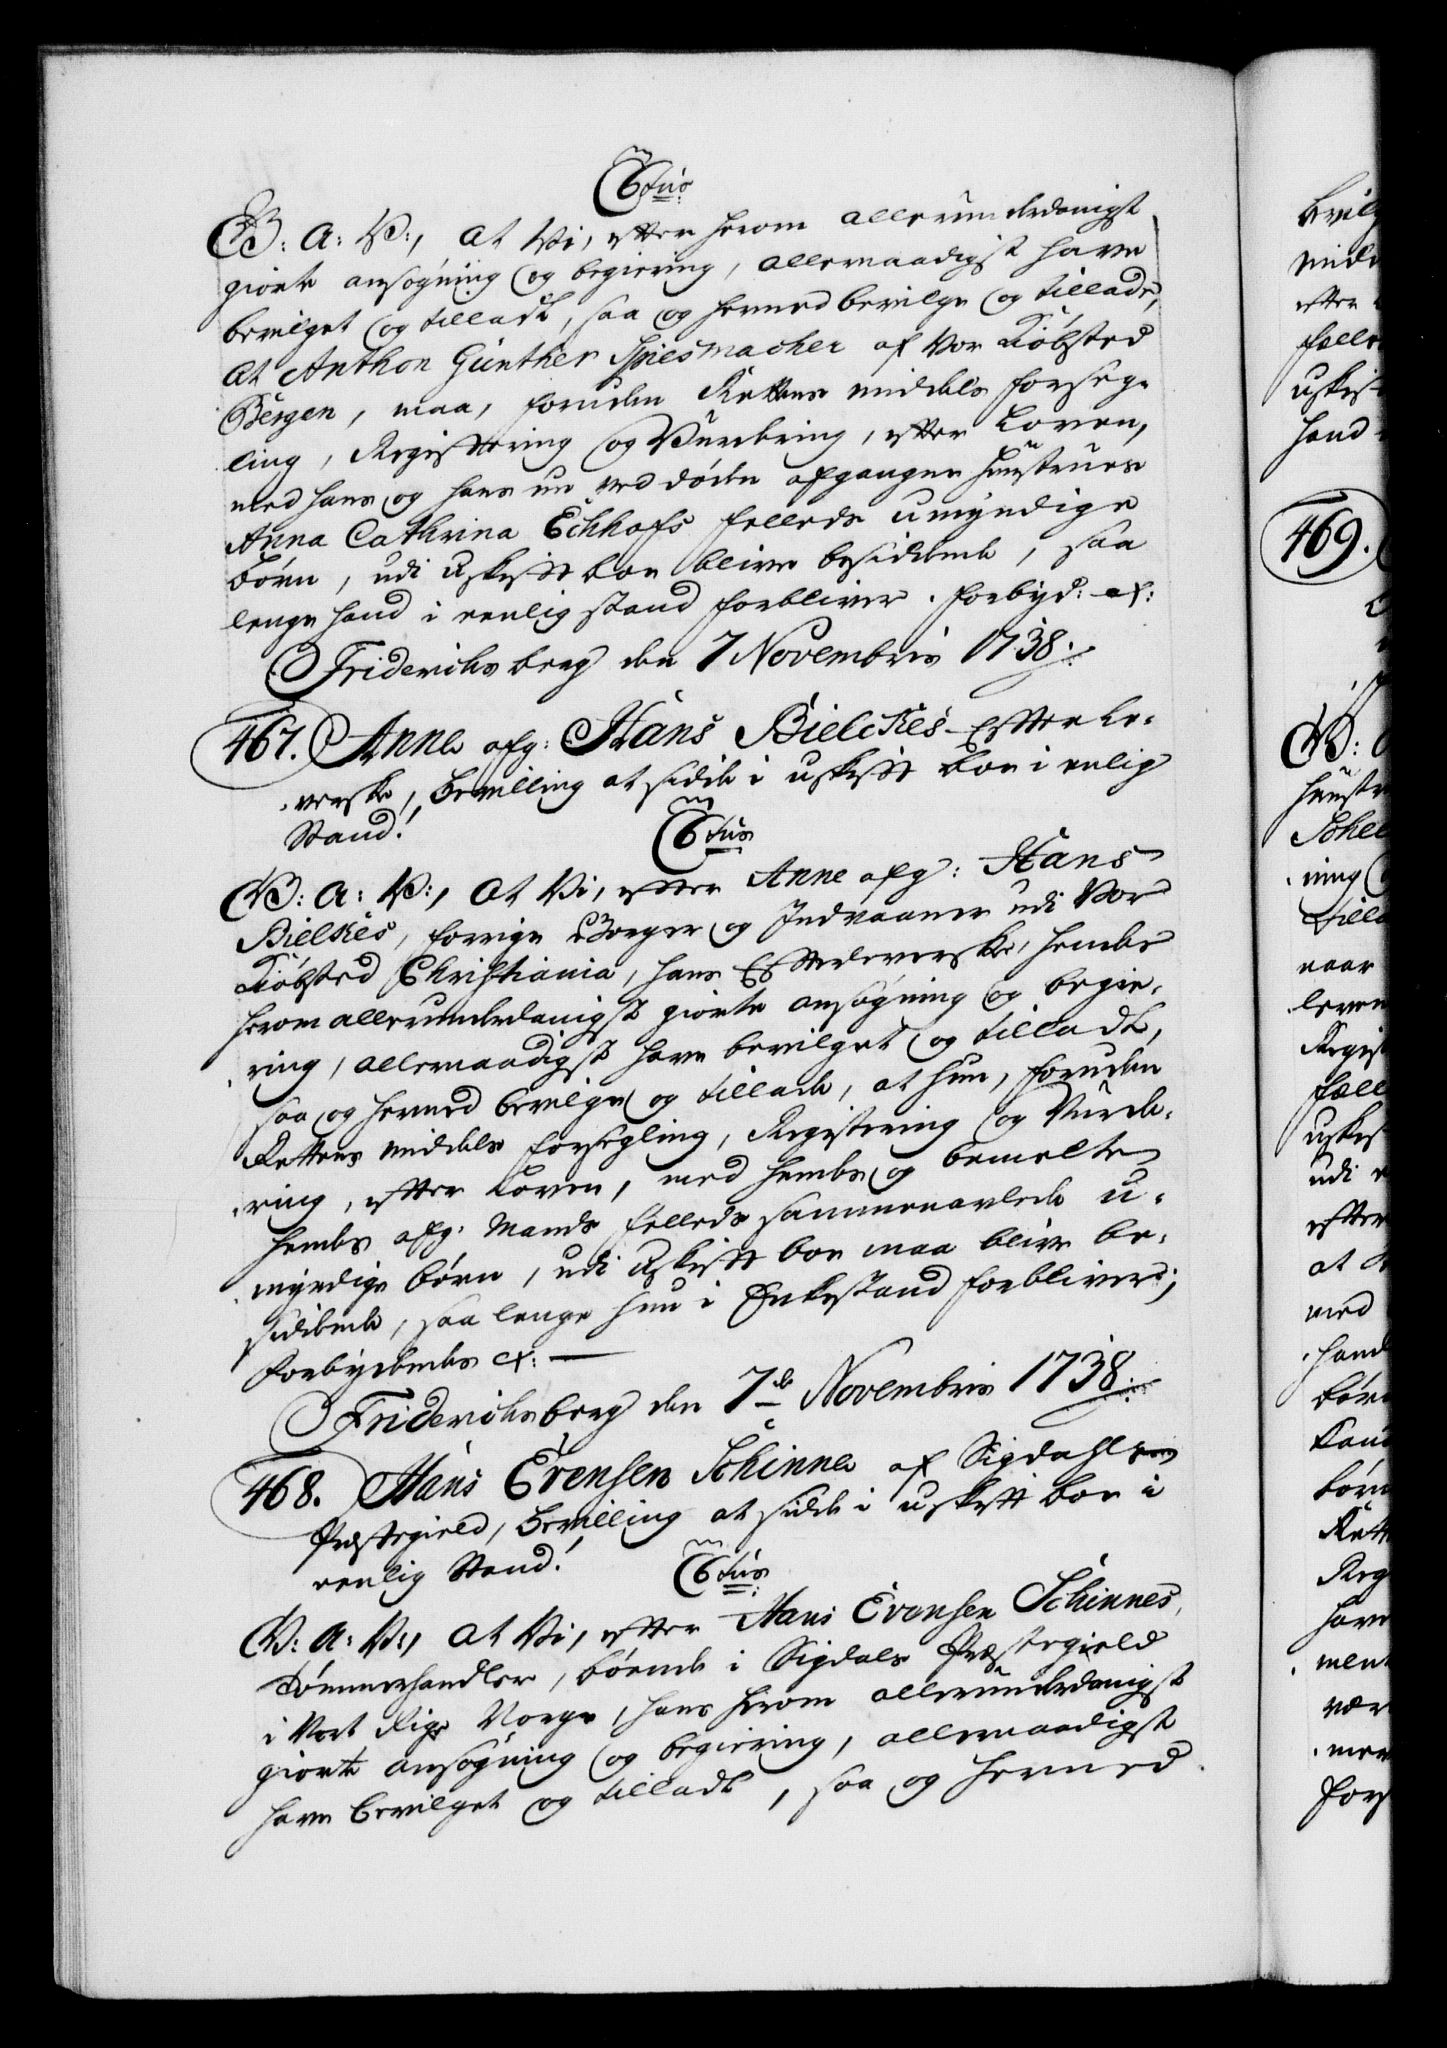 C6tus
G: A: V:, At Vi, efter herom allerunderdanigst
giorte ansøgning og begiering, allernaadigst have
bevilget og tilladt, saa og hermed bevilge og tillade,
At Anthon Günther Spiesmacher af Vor Kiøbsted
Bergen, maa, foruden Rettens middels forseg-
ling, Registering og Vurdering, efter Loven,
med hans og hans nu ved døden afgangne hustrues
Anna Cathrina Eckhofs felleds umyndige
børn, udi uskift boe blive besiddende, saa
lenge hand i eenlig stand forbliver. forbyd: &:
Friderichsberg den 7 Novembris 1738.
467. Anne afg: Hans Bielckes Efterle-
verske, Bevilling at sidde i uskift boe i enlig
Stand!
C6tus
G: A: V:, At Vi, efter Anne afg: Hans
Bielkes, forrige Borger og Indvaaner udi Vor
Kiøbsted Christiania, hans Efterleverske, hendes
herom allerunderdanigst giorte ansøgning og begie-
ring, allernaadigst have bevilget og tilladt,
saa og hermed bevilge og tillade, at hun, foruden
Rettens middels forsegling, Registering og Vurde-
ring, efter Loven, med hendes og bemelte
hendes afg: Mands felleds sammenavlede u-
myndige børn, udi uskift boe maa blive be-
siddende, saa lenge hun i Enkestand forbliver;
forbydendes &:
Friderichsberg den 7de Novembris 1738.
468. Hans Evensen Schinnes af Sigdahls
Præstegield, Bevilling at sidde i uskift boe i
eenlig Stand!
C6tus:
G: A: V:, At Vi, efter Hans Evensen Schinnes,
Tømmerhandler, boende i Sigdals Præstegield
i Vort Rige Norge, hans herom allerunderdanigst
giorte ansøgning og begiering, allernaadigst
have bevilget og tilladt, saa og hermed
469.